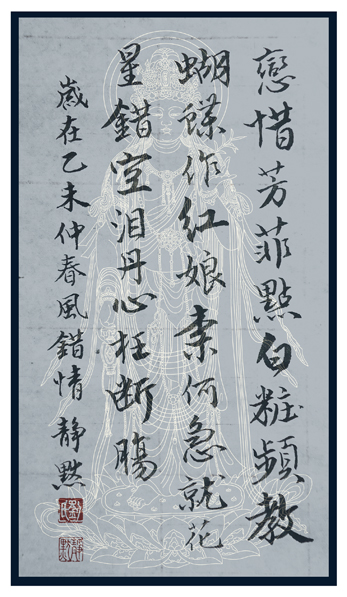 戀惜芳菲點白粧頻教
蝴蝶作紅娘柰何急就花
星錯空泪丹心枉断腸
歲在乙未仲春風錯情靜默
劉氏
靜默